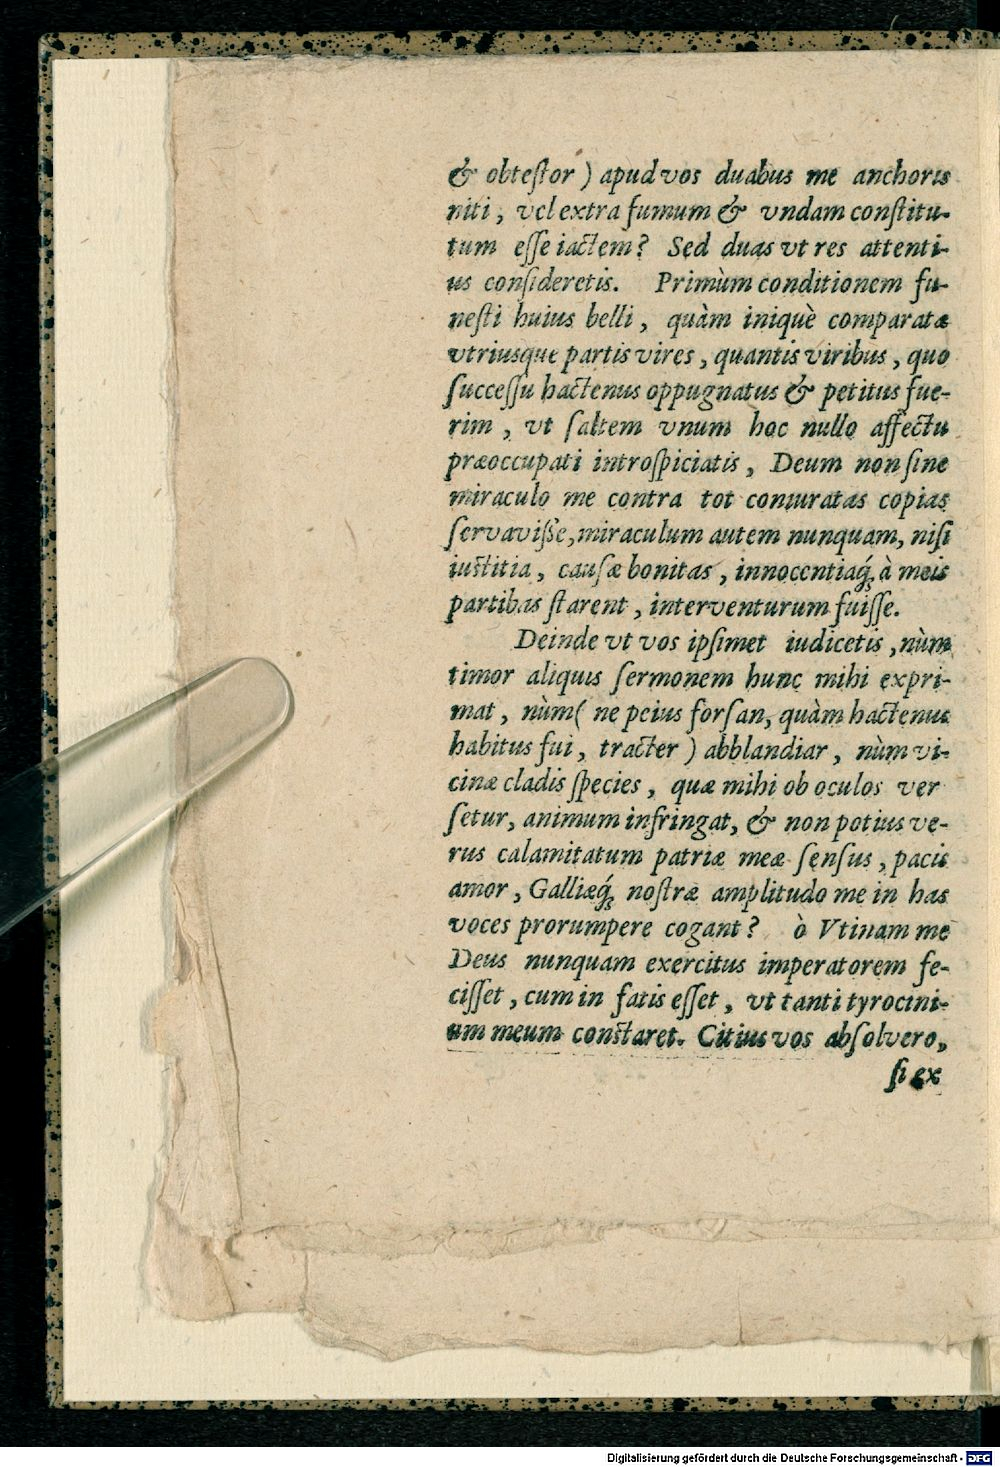 & obteſtor ) apud vos duabus me anchoris
niti, vel extra fumum & vndam conſtitu-
tum eſſe iactem? Sed duas vt res attenti-
us conſideretis. Primùm conditionem fu-
neſti huius belli, quàm iniquè comparatæ
vtriusque partis vires, quantis viribus, quo
ſucceſſu hactenus oppugnatus & petitus fue-
rim, vt ſaltem vnum hoc nullo affectu
præoccupati introſpiciatis, Deum non ſine
miraculo me contra tot coniuratas copias
ſervaviſſe, miraculum autem nunquam, niſi
iuſtitia, cauſæ bonitas, innocentiaq́; à meis
partibas ſtarent, interventurum fuiſſe.
Deinde vt vos ipſimet iudicetis, nùm
timor aliquis ſermonem hunc mihi expri-
mat, nùm( ne peius forſan, quàm hactenus
habitus fui, tracter ) abblandiar, nùm vi-
cinæ cladis ſpecies, quæ mihi ob oculos ver
ſetur, animum infringat, & non potius ve-
rus calamitatum patriæ meæ ſenſus, pacis
amor, Galliæq́; noſtræ amplitudo me in has
voces prorumpere cogant? ò Vtinam me
Deus nunquam exercitus imperatorem fe-
ciſſet, cum in fatis eſſet, vt tanti tyrocini-
um meum conſtaret. Citius vos abſolvero,
ſi ex
Digitalisierung gefördert durch die Deutsche Forschungsgemeinschaft - DFG